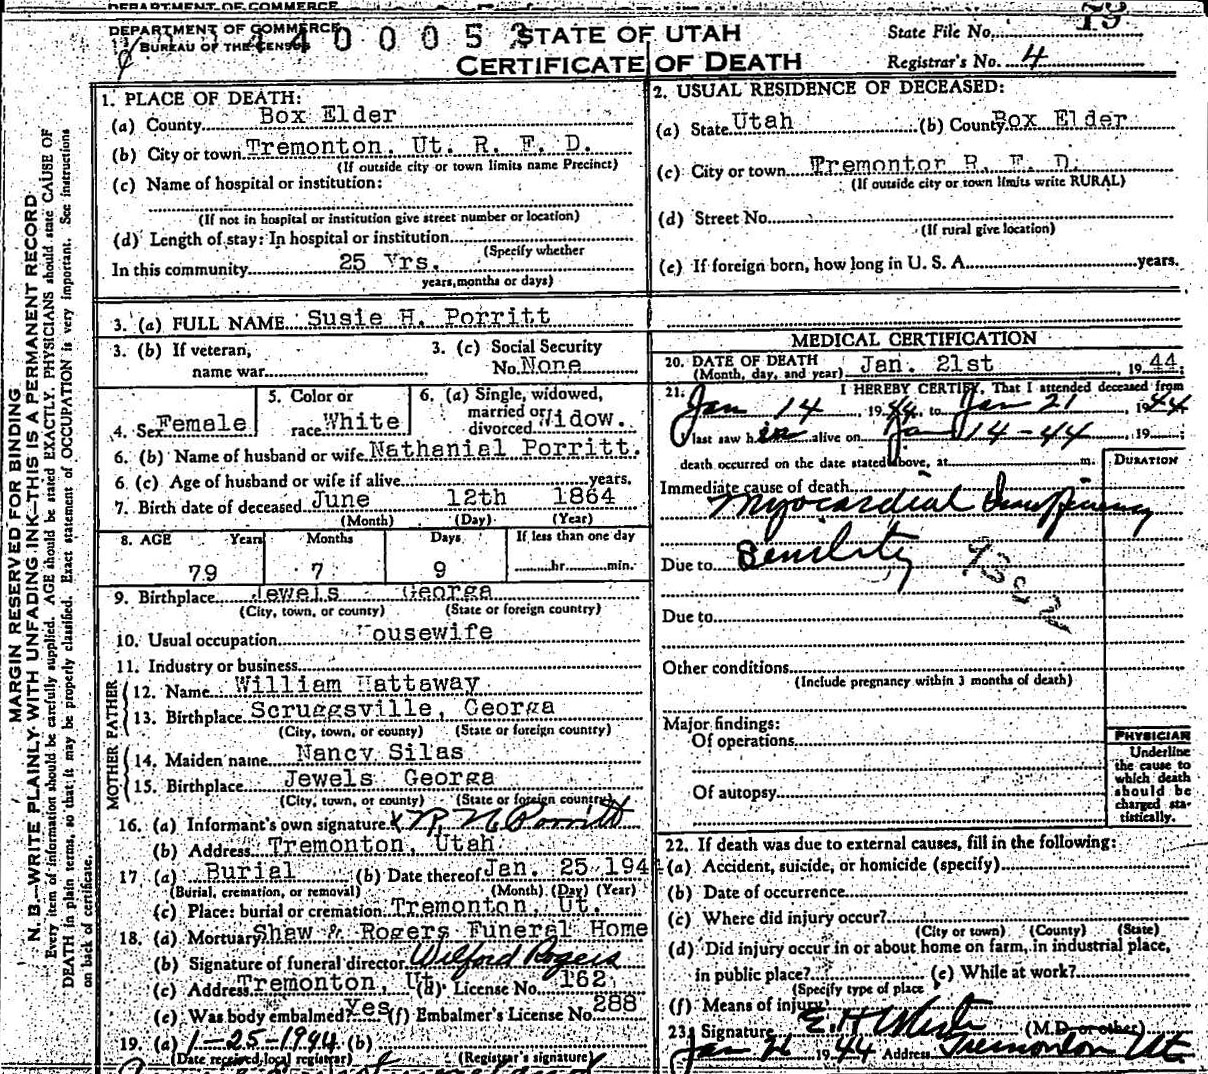 DEPARTMENT OF COMMERCE
DEPARTMENT OF COMMERCE
BUREAU OF THE CENSUS
STATE OF UTAH
CERTIFICATE OF DEATH
State File No. 73
Registrar's No. 4
1. PLACE OF DEATH:
(a) County Box Elder
(b) City or town Tremonton, Ut. R. F. D.
(If outside city or town limits name Precinct)
(c) Name of hospital or institution:
(If not in hospital or institution give street number or location)
(d) Length of stay: In hospital or institution
(Specify whether
In this community 25 Yrs.
years, months or days)
2. USUAL RESIDENCE OF DECEASED:
(a) State Utah (b) County Box Elder
(c) City or town Tremonton R. F. D.
(If outside city or town limits write RURAL)
(d) Street No.
(If rural give location)
(e) If foreign born, how long in U. S. A. years.
3. (a) FULL NAME Susie H. Porritt
3. (b) If veteran,
name war
3. (c) Social Security
No. None
4. Sex Female
5. Color or
race White
6. (a) Single, widowed,
married or
divorced Widow.
6. (b) Name of husband or wife Nathanial Porritt.
6. (c) Age of husband or wife if alive years.
7. Birth date of deceased June 12th 1864
(Month) (Day) (Year)
8. AGE Years Months Days If less than one day
79 7 9 hr. min.
9. Birthplace Jewels Georga
(City, town, or county) (State or foreign country)
10. Usual occupation Housewife
11. Industry or business
FATHER
12. Name William Hattaway
13. Birthplace Scruggsville, Georga
(City, town, or county) (State or foreign country)
MOTHER
14. Maiden name Nancy Silas
15. Birthplace Jewels Georga
(City, town, or county) (State or foreign country)
16. (a) Informant's own signature x R. N. Porritt
(b) Address Tremonton, Utah
17 (a) Burial (b) Date thereof Jan. 25 194
(Burial, cremation, or removal) (Month) (Day) (Year)
(c) Place: burial or cremation Tremonton, Ut.
18. (a) Mortuary Shaw & Rogers Funeral Home
(b) Signature of funeral director Wilford Rogers
(c) Address Tremonton, Ut. (d) License No. 162
(e) Was body embalmed? Yes (f) Embalmer's License No. 288
19. (a) 1-25-1944 (b)
(Date received local registrar) (Registrar's signature)
MEDICAL CERTIFICATION
20. DATE OF DEATH
(Month, day, and year) Jan. 21st 1944;
21. I HEREBY CERTIFY, That I attended deceased from
Jan 14, 1944, to Jan 21 1944
I last saw h alive on Jan 14-44, 19
death occurred on the date stated above, at m.
DURATION
Immediate cause of death
Myocardial Insufficiency
Due to Senility
Due to
Other conditions
(Include pregnancy within 3 months of death)
Major findings:
Of operations
Of autopsy
PHYSICIAN
Underline
the cause to
which death
should be
charged sta-
tistically.
22. If death was due to external causes, fill in the following:
(a) Accident, suicide, or homicide (specify)
(b) Date of occurrence
(c) Where did injury occur?
(City or town) (County) (State)
(d) Did injury occur in or about home on farm, in industrial place,
in public place? (e) While at work?
(Specify type of place
(f) Means of injury
23. Signature E. H. West (M.D. or other)
Jan 1944 Address Tremonton Ut.
MARGIN RESERVED FOR BINDING
N. B.—WRITE PLAINLY WITH UNFADING INK—THIS IS A PERMANENT RECORD
Every item of information should be carefully supplied. AGE should be stated EXACTLY. PHYSICIANS should state CAUSE OF
DEATH in plain terms, so that it may be properly classified. Exact statement of OCCUPATION is very important. See instructions
on back of certificate.